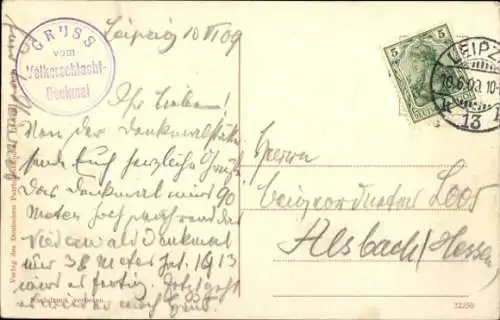 Leipzig 10 VI 09
GRUSS
vom
Völkerschlacht-
Denkmal
Ihr Lieben!
Von der Denkmalstätte
sende Euch herzliche Grüße
Das Denkmal wird 90
Meter hoch während das
Niederwalddenkmal
nur 38 Meter hat. 1913
wird es fertig. Jetzt geht
es weiter nach
5
5
LEIPZIG
10.6.09. 10-
13
Herrn
Loos
Alsbach (Hessen)
Verlag des Deutschen
32256